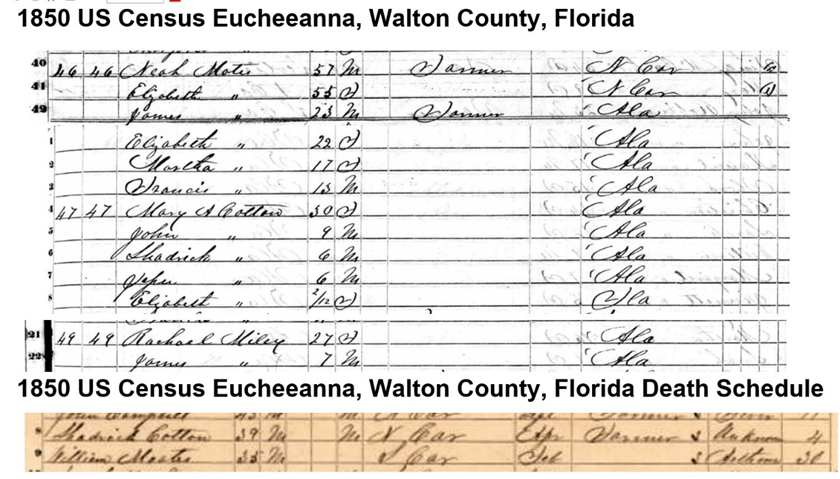 1850 US Census Eucheeanna, Walton County, Florida
40 46 46 Neah Motes 57 M Farmer N Car
41 Elizabeth " 55 F N Car
42 James " 23 M Farmer Ala
1 Elizabeth " 22 F Ala
2 Martha " 17 F Ala
3 Francis " 13 M Ala
4 47 47 Mary A Cotton 30 F Ala
5 John " 9 M Ala
6 Shadrick " 6 M Ala
7 " 6 M Ala
8 Elizabeth " 2/12 F Fla
21 49 49 Rachael Miley 27 F Ala
22 James " 7 M Ala
1850 US Census Eucheeanna, Walton County, Florida Death Schedule
John Campbell 43 M M N Car Farmer
8 Shadrick Cotton 39 M M N Car Apr Farmer Unknown 4
9 William 35 M S Car Feb Asthma 30